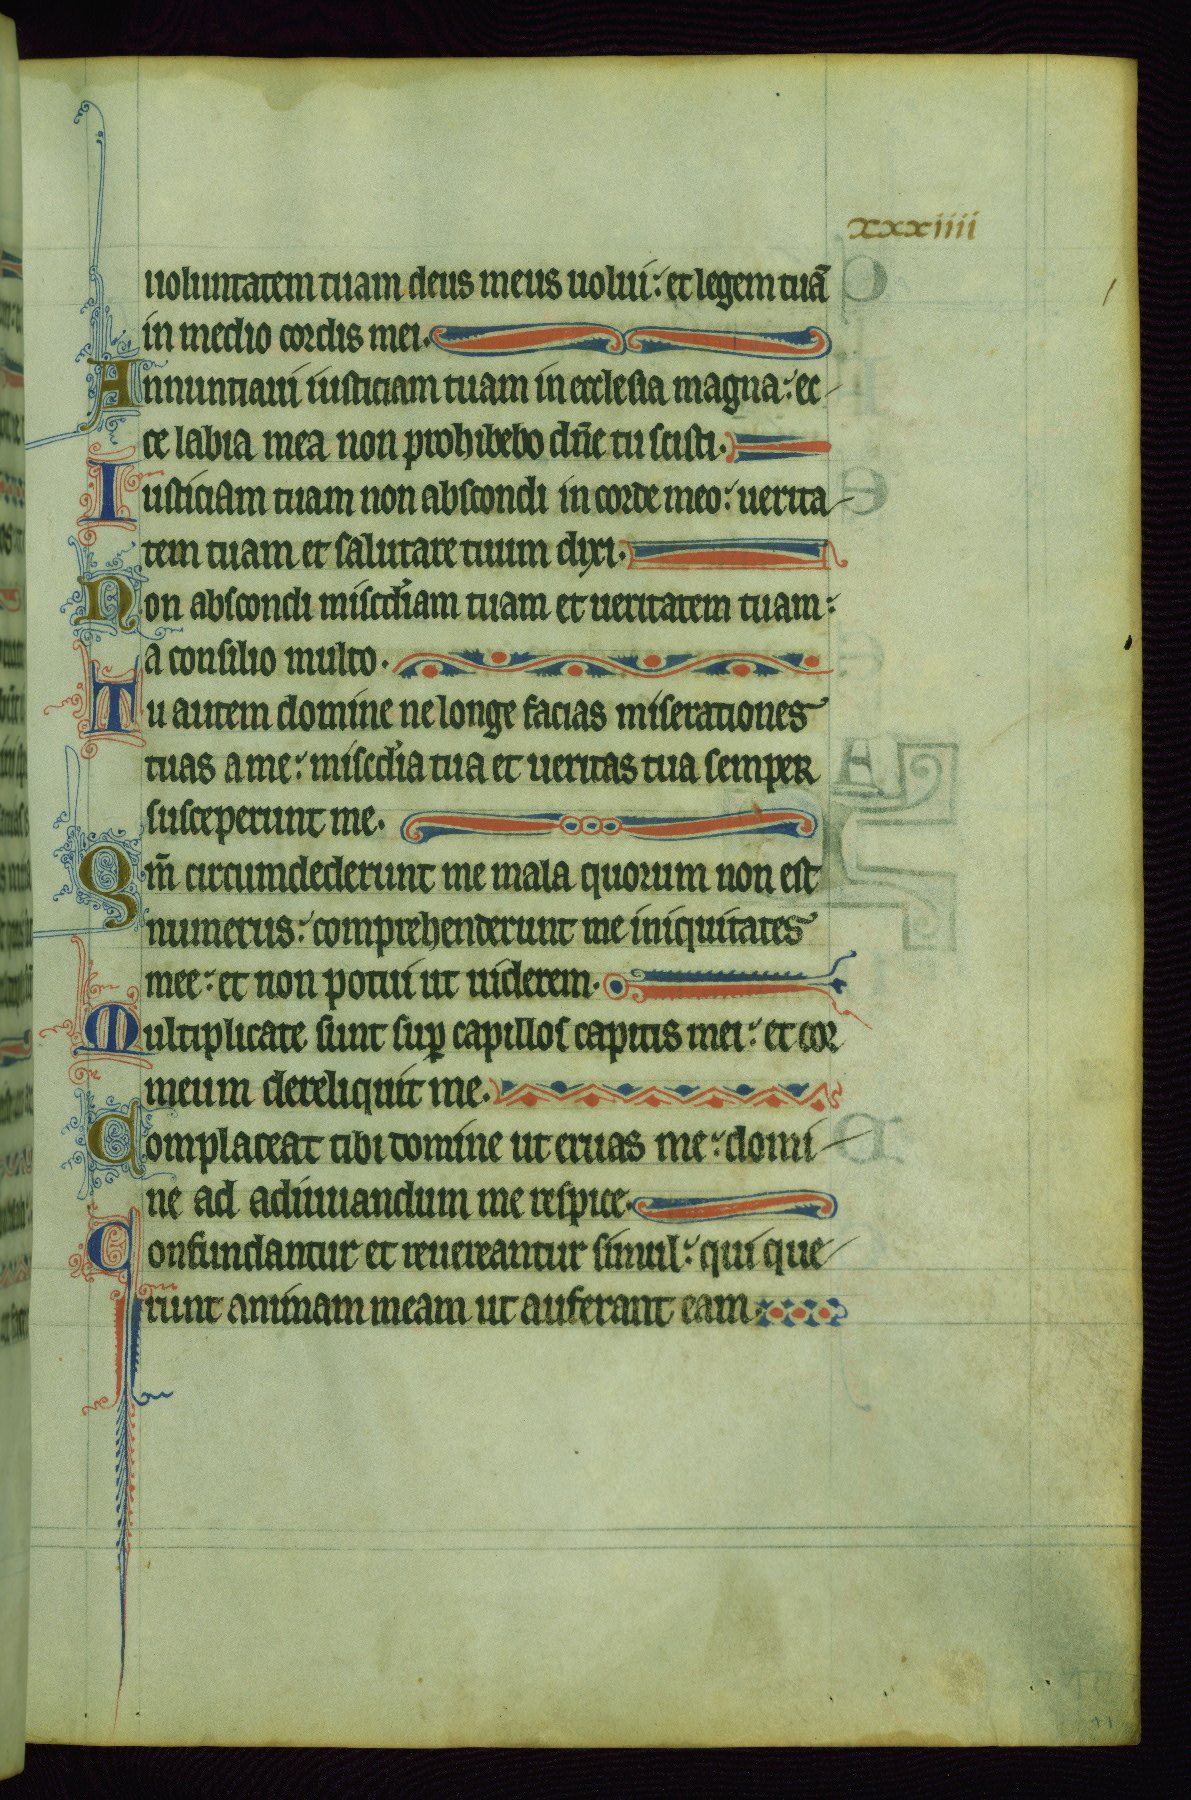 xxxiiii
uoluntatem tuam deus meus uolui: et legem tuā
in medio cordis mei.
Annuntiaui iusticiam tuam in ecclesia magna: ec
ce labia mea non prohibebo dn̄e tu scisti.
Iusticiam tuam non abscondi in corde meo: uerita
tem tuam et salutare tuum dixi.
Non abscondi misc̄diam tuam et ueritatem tuam:
a consilio multo.
Tu autem domine ne longe facias miserationes
tuas a me: misc̄dia tua et ueritas tua semper
susceperunt me.
Qm̄ circumdederunt me mala quorum non est
numerus: comprehenderunt me iniquitates
mee: et non potui ut uiderem.
Multiplicate sunt suꝑ capillos capitis mei: et cor
meum dereliquit me.
Complaceat tibi domine ut eruas me: domi
ne ad adiuuandum me respice.
Confundantur et reuereantur simul: qui que
runt animam meam ut auferant eam.